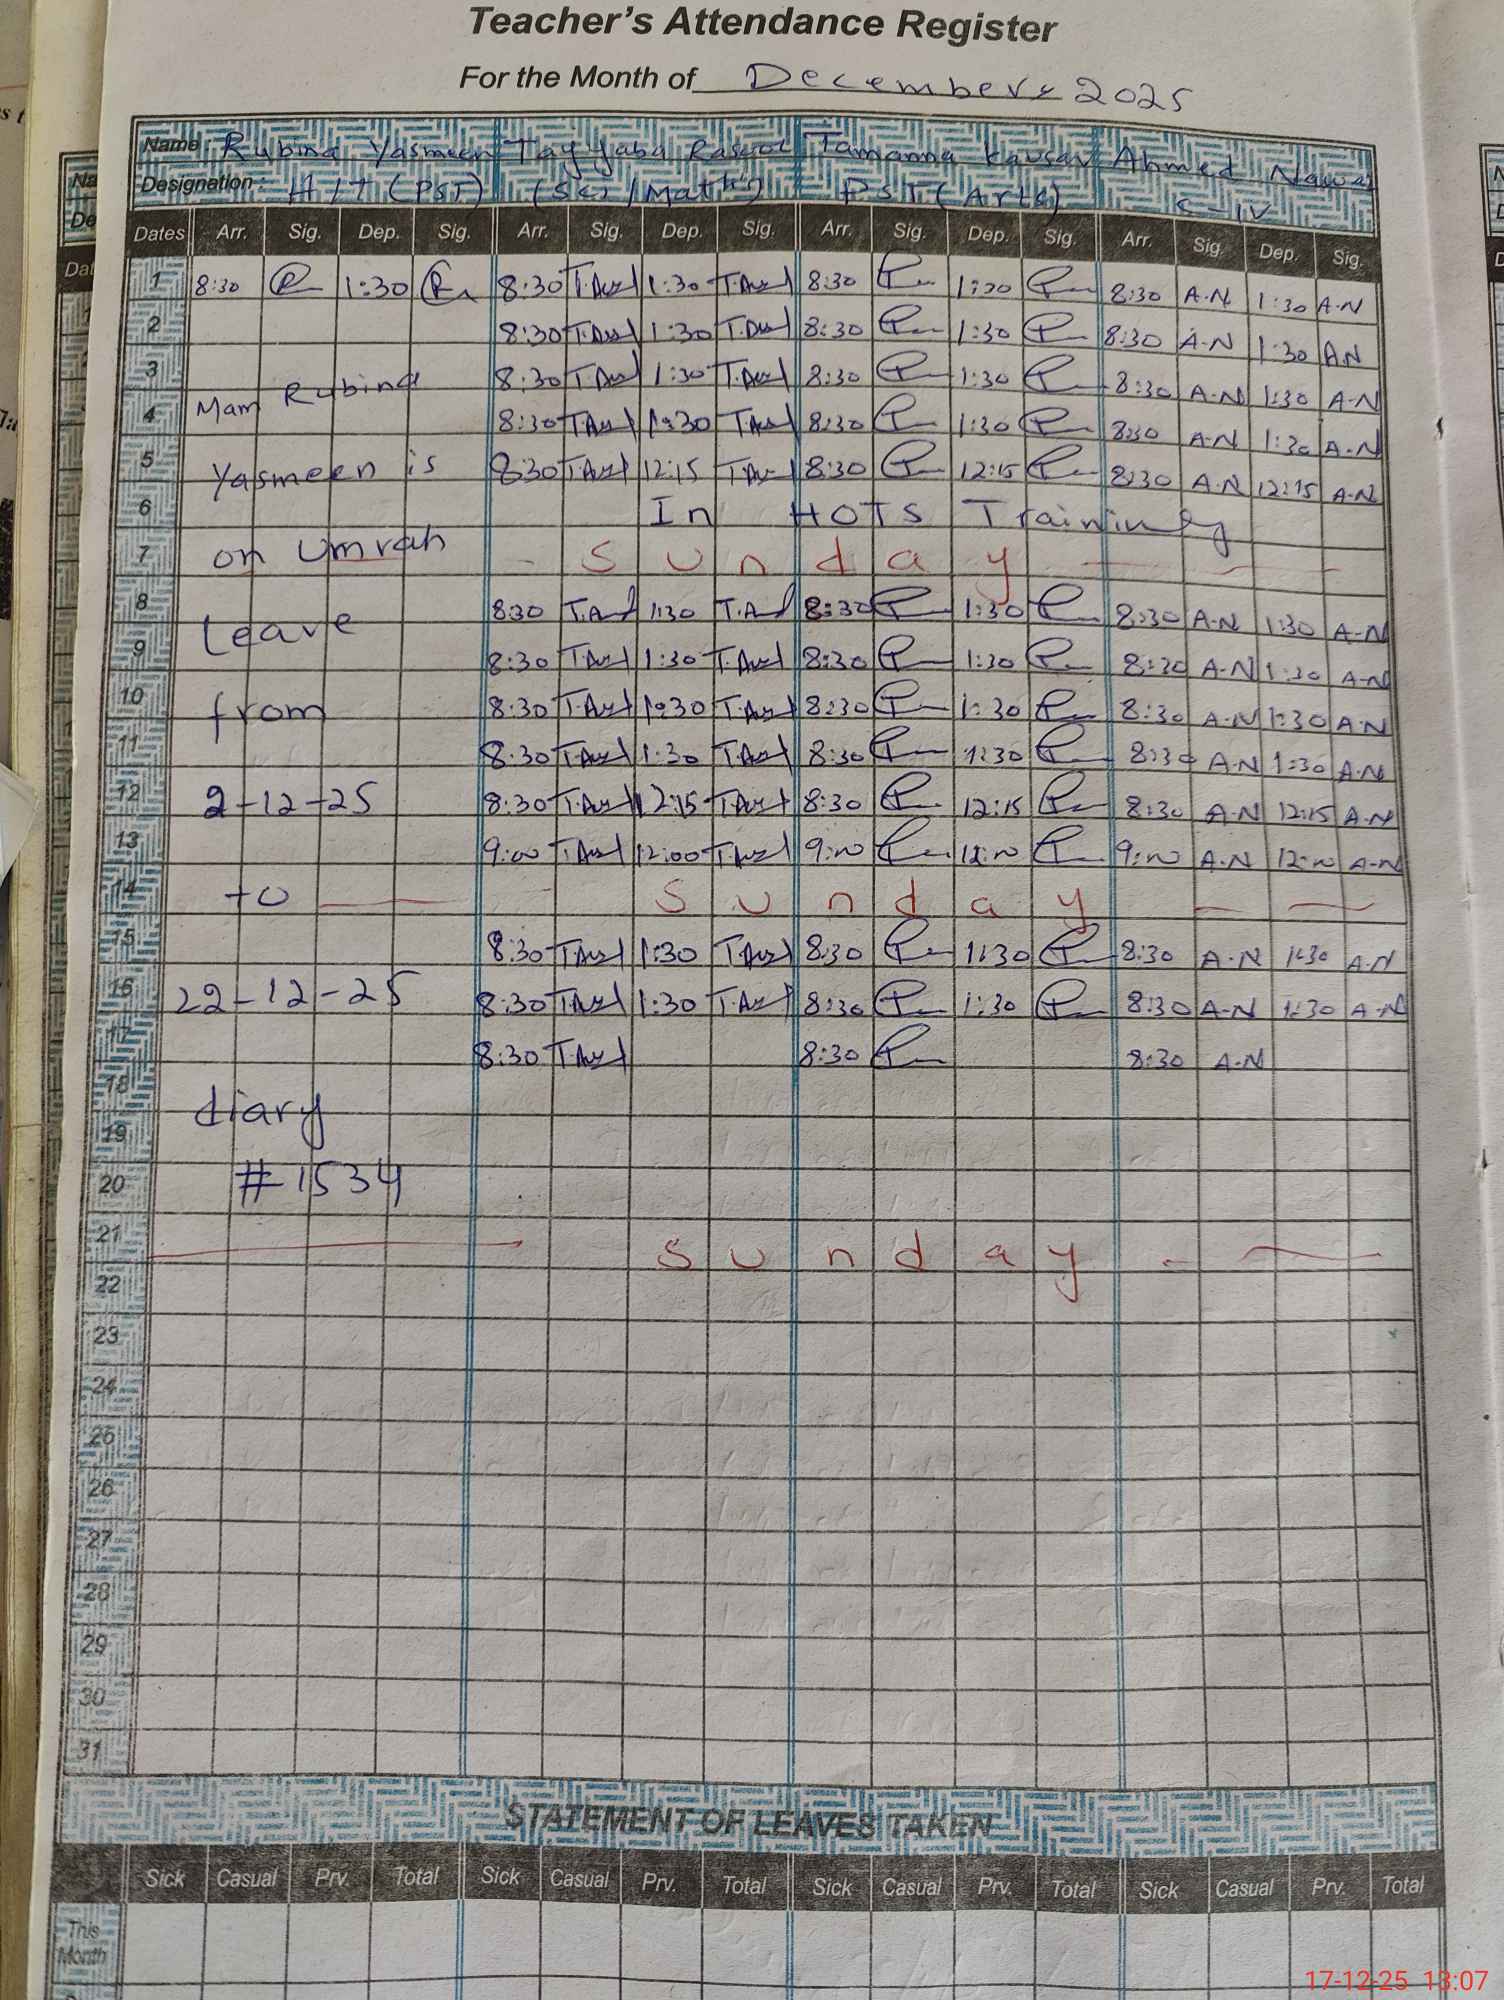 Teacher's Attendance Register
For the Month of December 2025
Name: Rubina Yasmeen Tayyaba Rasool Tamanna Kausar Ahmed Nawaz
Designation: H/T (PST) (Sci/Math's) PST (Arts) C-IV
Dates Arr. Sig. Dep. Sig. Arr. Sig. Dep. Sig. Arr. Sig. Dep. Sig. Arr. Sig. Dep. Sig.
1 8:30 1:30 8:30 1:30 8:30 1:30 8:30 A.N 1:30 A.N
2 8:30 1:30 8:30 1:30 8:30 A.N 1:30 AN
3 Mam Rubina 8:30 1:30 8:30 1:30 8:30 A.N 1:30 A-N
4 8:30 1:30 8:30 1:30 8:30 A.N 1:30 A.N
5 Yasmeen is 8:30 12:15 8:30 12:15 8:30 A.N 12:15 A.N
6 In HOTS Training
7 on Umrah Sunday
8 8:30 1:30 8:30 1:30 8:30 A-N 1:30 A-N
9 Leave 8:30 1:30 8:30 1:30 8:30 A-N 1:30 A-N
10 from 8:30 1:30 8:30 1:30 8:30 A-N 1:30 A-N
11 8:30 1:30 8:30 1:30 8:30 A-N 1:30 A-N
12 2-12-25 8:30 12:15 8:30 12:15 8:30 A-N 12:15 A-N
13 9:00 12:00 9:00 12:00 9:00 A-N 12:00 A-N
14 to Sunday
15 8:30 1:30 8:30 1:30 8:30 A-N 1:30 A-N
16 22-12-25 8:30 1:30 8:30 1:30 8:30 A-N 1:30 A-N
17 8:30 8:30 8:30 A-N
18 diary
19
20 #1534
21 Sunday
22
23
24
25
26
27
28
29
30
31
STATEMENT OF LEAVES TAKEN
Sick Casual Prv. Total Sick Casual Prv. Total Sick Casual Prv. Total Sick Casual Prv. Total
This
Month
17-12-25 13:07